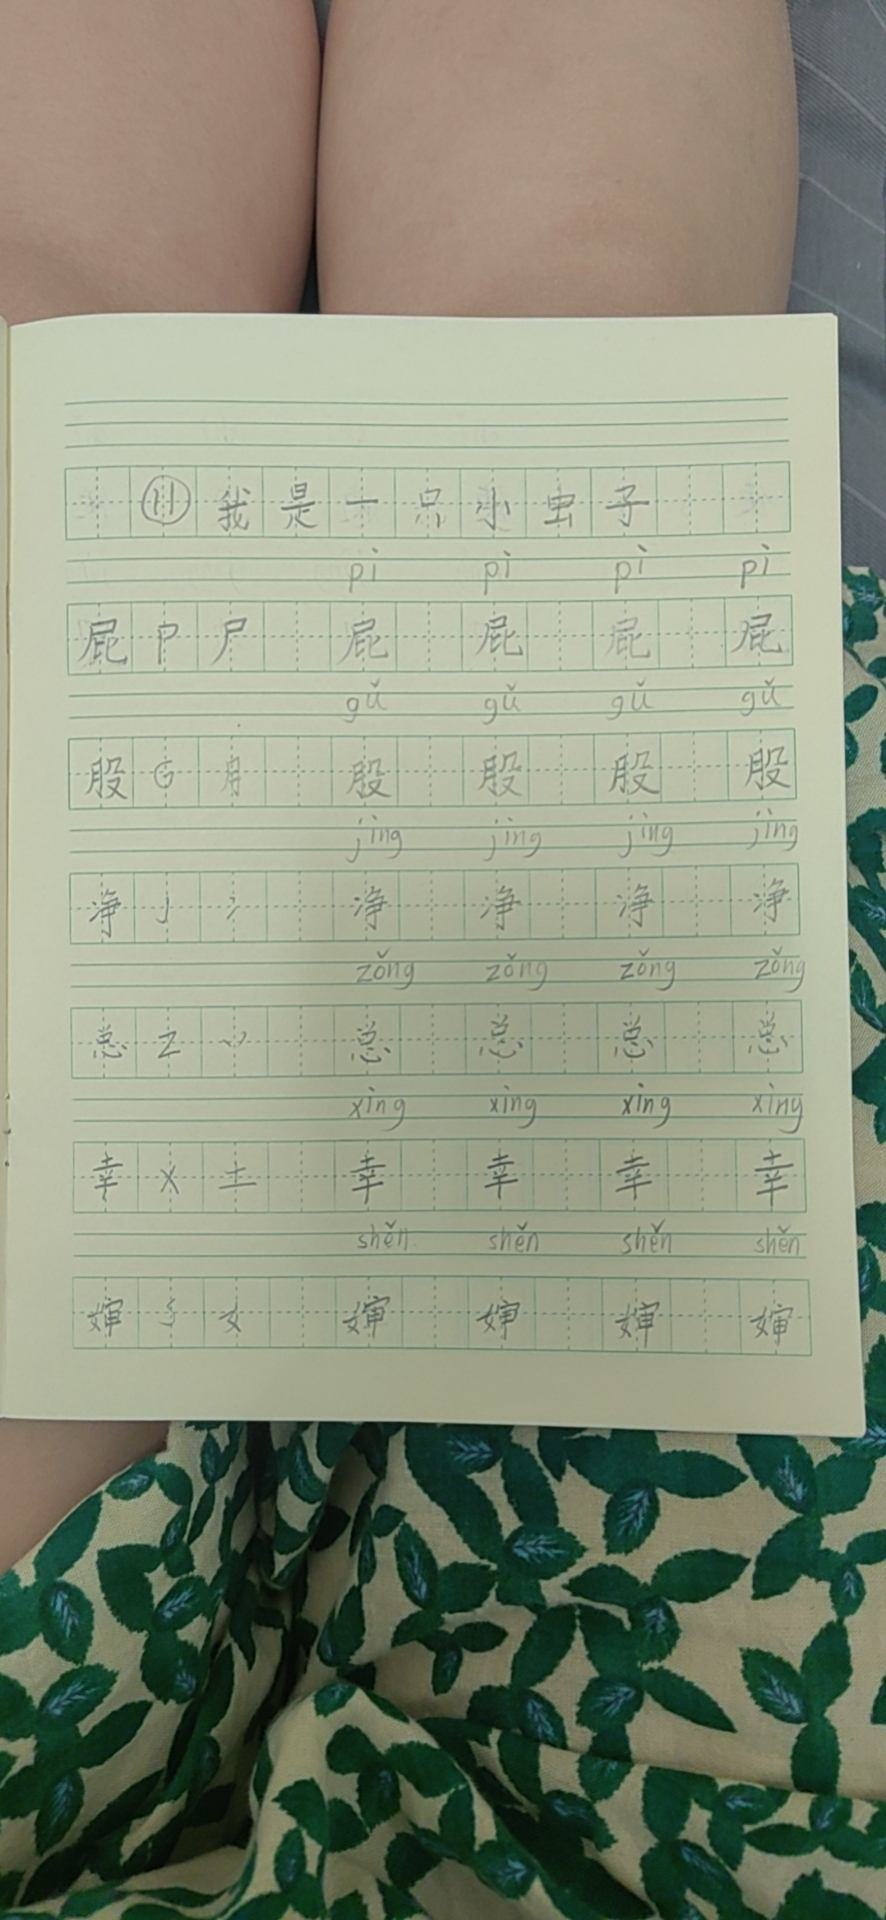 ⑪ 我是一只小虫子
pì pì pì pì
屁 P 尸 屁 屁 屁 屁
gǔ gǔ gǔ gǔ
股 G 月 股 股 股 股
jìng jìng jìng jìng
净 J 冫 净 净 净 净
zǒng zǒng zǒng zǒng
总 Z 丷 总 总 总 总
xìng xìng xìng xìng
幸 X 土 幸 幸 幸 幸
shěn shěn shěn shěn
婶 S 女 婶 婶 婶 婶